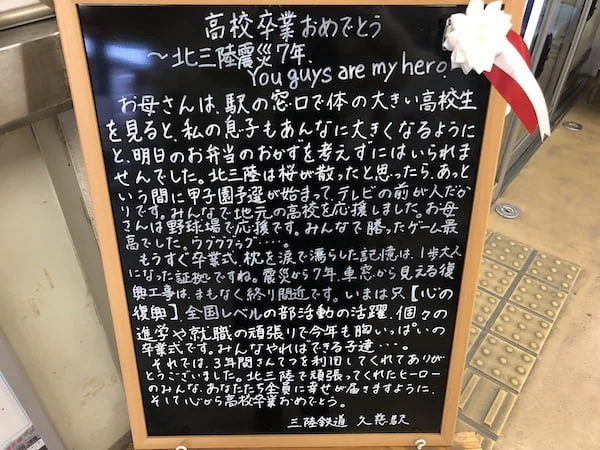 高校卒業おめでとう
～北三陸震災7年、
You guys are my hero.
お母さんは、駅の窓口で体の大きい高校生
を見ると、私の息子もあんなに大きくなるように
と、明日のお弁当のおかずを考えずにはいられま
せんでした。北三陸は桜が散ったと思ったら、あっと
いう間に甲子園予選が始まって、テレビの前が人だか
りです。みんなで地元の高校を応援しました。お母
さんは野球場で応援です。みんなで勝ったゲーム最
高でした。ウグググッグ・・・・。
もうすぐ卒業式、枕を涙で濡らした記憶は、1歩大人
になった証拠ですね。震災から7年、車窓から見える復
興工事は、まもなく終り間近です。いまは只【心の
復興】全国レベルの部活動の活躍、個々の
進学や就職の頑張りで今年も胸いっぱいの
卒業式です。みんなやればできる子達・・・。
それでは、3年間さんてつを利用してくれてありが
とうございました。北三陸で頑張ってくれたヒーロー
のみんな、あなたたち全員に幸せが届きますように、
そして心から高校卒業おめでとう。
三陸鉄道 久慈駅